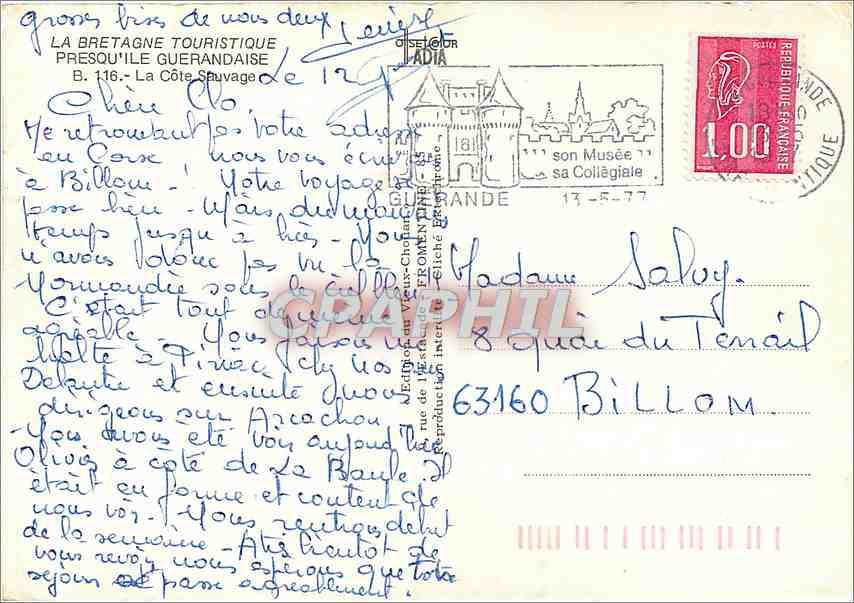 grosses bises de nous deux
LA BRETAGNE TOURISTIQUE
PRESQU'ILE GUERANDAISE
B. 116.- La Côte Sauvage
Le 12
Chère Clo,
Ne retrouvant pas votre adresse
en Corse nous vous écrivons
à Billom! Notre voyage se
passe bien - Mais du mauvais
temps jusqu'à hier - Nous
n'avons donc pas vu la
Normandie sous le
C'était tout de même
agréable - Nous faisons une
halte à Piriac chez nos amis
et ensuite nous
dirigeons sur Arcachon -
Nous avons été voir aujourd'hui
Olivier à côté de La Baule. Il
était en forme et content de
nous voir. Nous rentrons début
de la semaine - A très bientôt de
vous revoir nous espérons que votre
séjour se passe agréablement.
OFFSET COLOR
ADIA
181
son Musée
sa Collégiale
GUERANDE 13-5-77
POSTES
REPUBLIQUE FRANÇAISE
1,00
Edition du Vieux-Chouan
rue de l'Estacade - FROMENTINE - 85
Reproduction interdite - Cliché Ektachrome
CPAPHIL
Madame Salvy.
8 Quai du Terrail
63160 BILLOM.